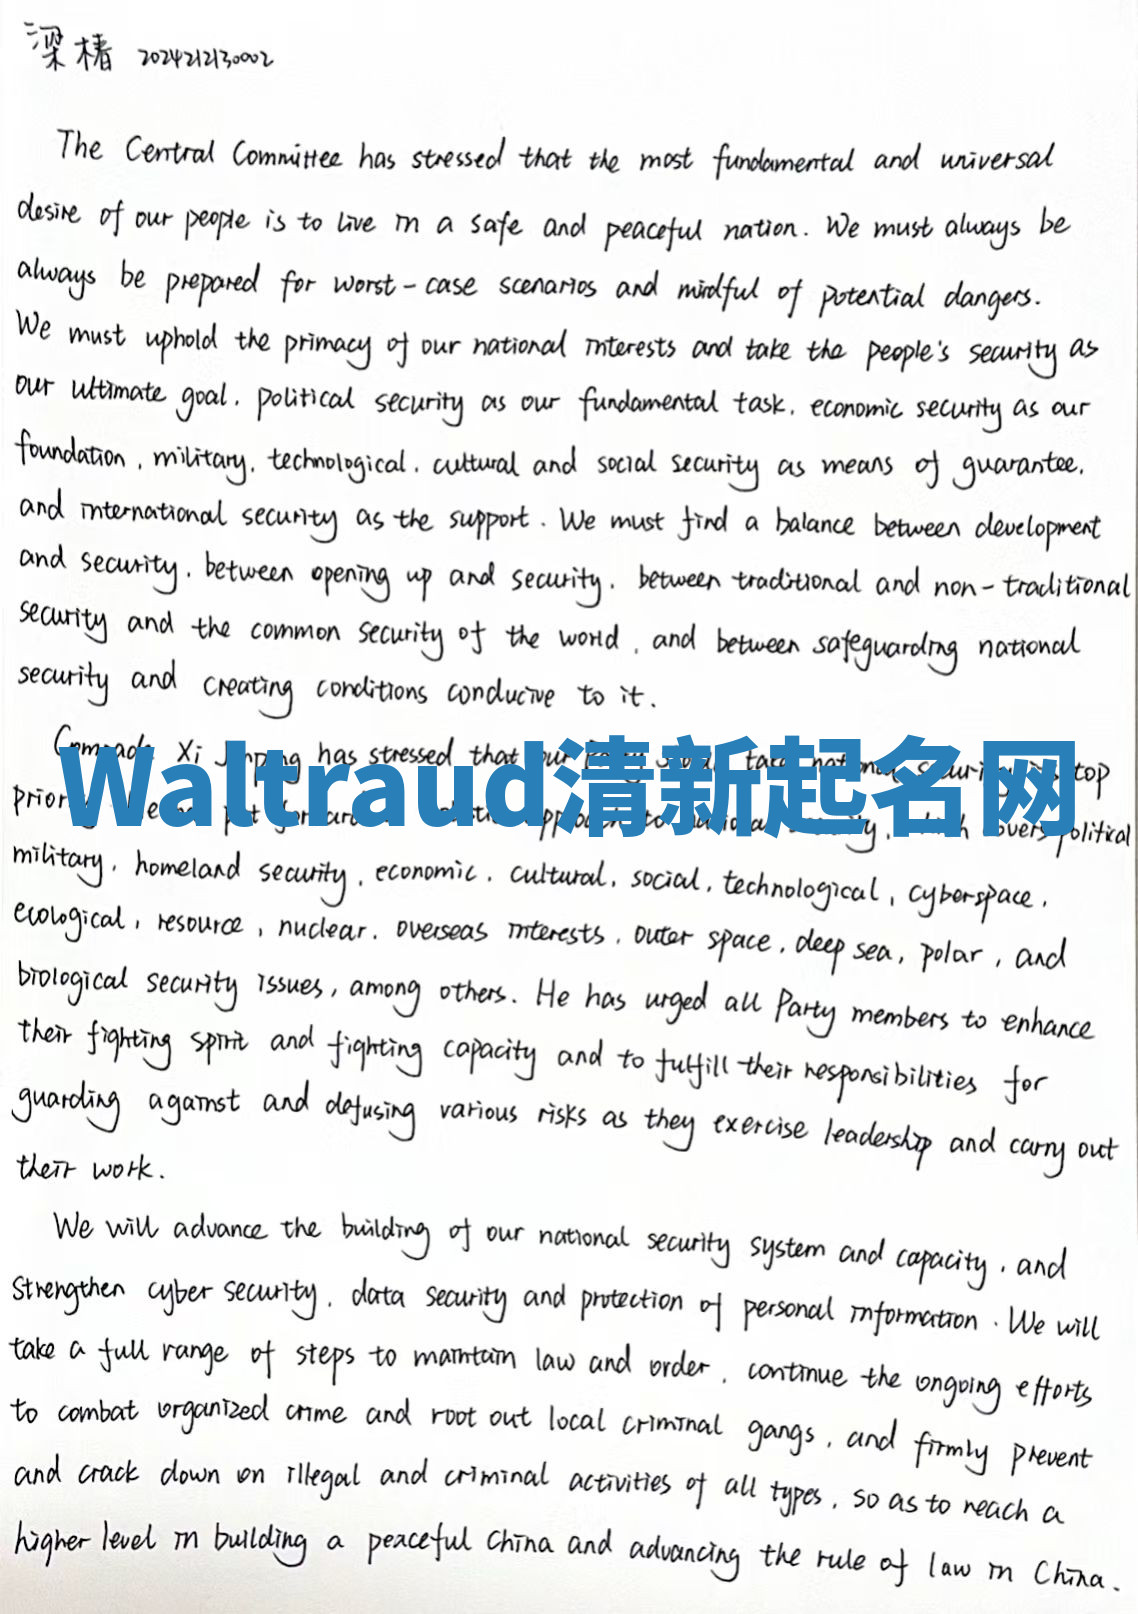 梁椿 2024212130002
The Central Committee has stressed that the most fundamental and universal
desire of our people is to live in a safe and peaceful nation. We must always be
always be prepared for worst-case scenarios and mindful of potential dangers.
We must uphold the primacy of our national interests and take the people's security as
our ultimate goal, political security as our fundamental task, economic security as our
foundation, military, technological, cultural and social security as means of guarantee,
and international security as the support. We must find a balance between development
and security, between opening up and security, between traditional and non-traditional
security and the common security of the world, and between safeguarding national
security and creating conditions conducive to it.
Xi Jinping has stressed that our top
Waltraud清新起名网
political
military, homeland security, economic, cultural, social, technological, cyberspace,
ecological, resource, nuclear, overseas interests, outer space, deep sea, polar, and
biological security issues, among others. He has urged all Party members to enhance
their fighting spirit and fighting capacity and to fulfill their responsibilities for
guarding against and defusing various risks as they exercise leadership and carry out
their work.
We will advance the building of our national security system and capacity, and
strengthen cyber security, data security and protection of personal information. We will
take a full range of steps to maintain law and order, continue the ongoing efforts
to combat organized crime and root out local criminal gangs, and firmly prevent
and crack down on illegal and criminal activities of all types, so as to reach a
higher level in building a peaceful China and advancing the rule of law in China.